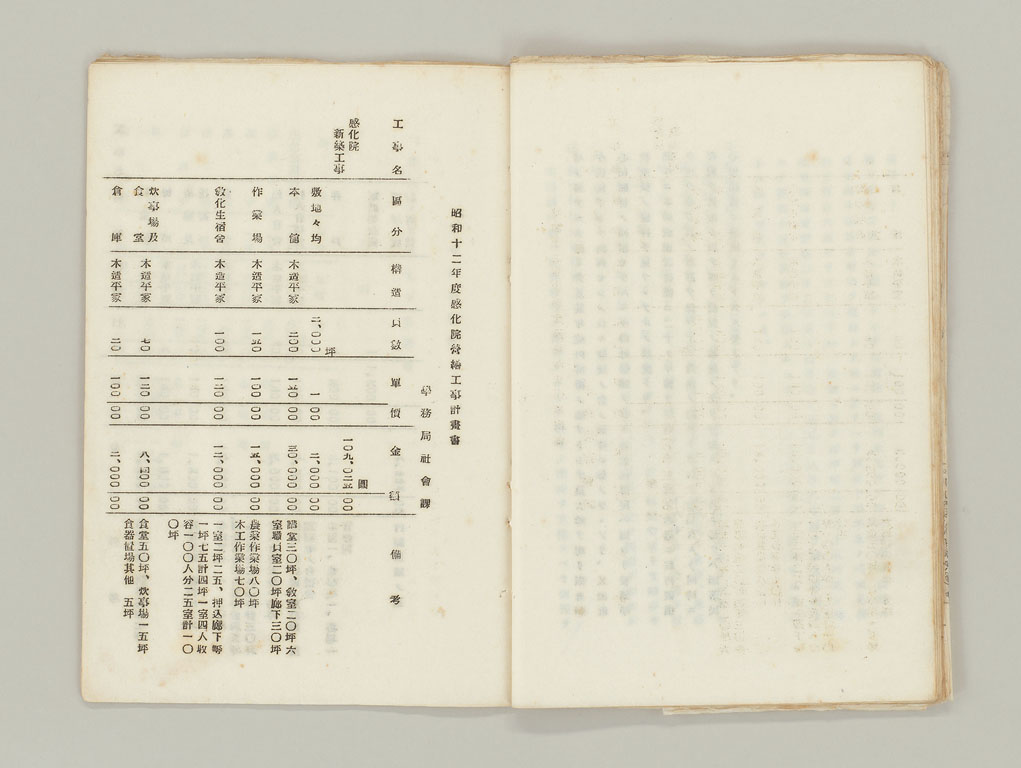 昭和十二年度感化院營繕工事計畫書
學務局社會課
工事名 區分 構造 員數 單價 金額 備考
感化院新築工事 一〇九、〇二五 圓 〇〇
敷地々均 二、〇〇〇坪 一 〇〇 二、〇〇〇 〇〇
本館 木造平家 二〇〇 一五〇 〇〇 三〇、〇〇〇 〇〇 講堂三〇坪、敎室二〇坪六
室職員室二〇坪廊下三〇坪
作業場 木造平家 一五〇 一〇〇 〇〇 一五、〇〇〇 〇〇 農業作業場八〇坪
木工作業場七〇坪
敎化生宿舍 木造平家 一〇〇 一二〇 〇〇 一二、〇〇〇 〇〇 一室二坪二五、押込廊下等
一坪七五計四坪一室四人收
容一〇〇人分二五室計一〇
〇坪
炊事場及食堂 木造平家 七〇 一二〇 〇〇 八、四〇〇 〇〇 食堂五〇坪、炊事場一五坪
食器置場其他 五坪
倉庫 木造平家 二〇 一〇〇 〇〇 二、〇〇〇 〇〇